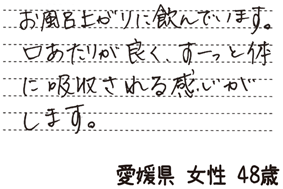 お風呂上がりに飲んでいます。
口あたりが良く、すーっと体
に吸収される感じが
します。
愛媛県 女性 48歳